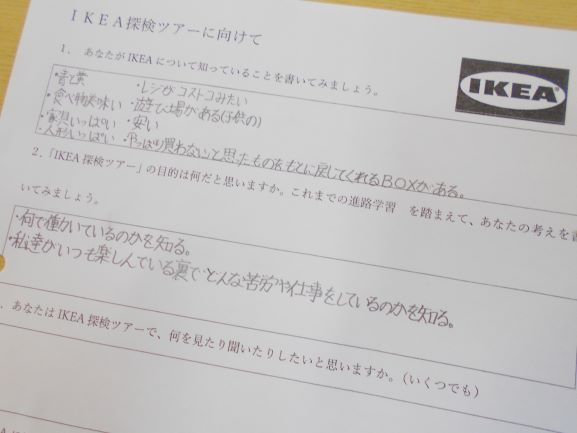 IKEA探検ツアーに向けて
IKEA
1. あなたがIKEAについて知っていることを書いてみましょう。
・青と黄 ・レジがコストコみたい
・食べ物美味い ・遊び場がある(子供の)
・家具いっぱい ・安い
・人形いっぱい ・やっぱり買わないっと思ったものをもとに戻してくれるBOXがある。
2.「IKEA探検ツアー」の目的は何だと思いますか。これまでの進路学習 を踏まえて、あなたの考えを書
いてみましょう。
・何で働いているのかを知る。
・私達がいつも楽しんでいる裏でどんな苦労や仕事をしているのかを知る。
. あなたはIKEA探検ツアーで、何を見たり聞いたりしたいと思いますか。(いくつでも)